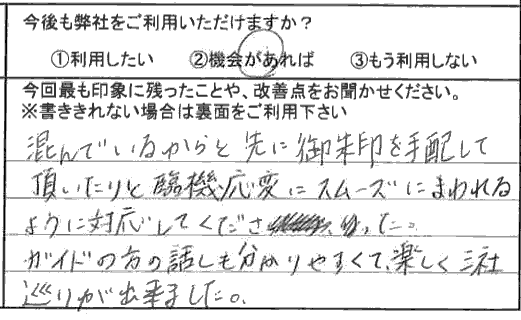 今後も弊社をご利用いただけますか？
①利用したい　②機会があれば　③もう利用しない
今回最も印象に残ったことや、改善点をお聞かせください。
※書ききれない場合は裏面をご利用下さい
混んでいるからと先に御朱印を手配して
頂いたりと臨機応変にスムーズにまわれる
ように対応してくださった。
ガイドの方の話しも分かりやすくて、楽しく三社
巡りが出来ました。